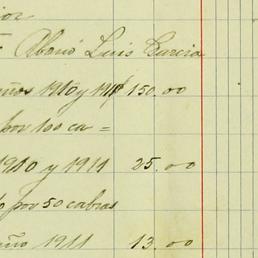 Abonó Luis Garcia
años 1910 y 1911 150.00
por 100 ca=
1910 y 1911 25.00
por 50 cabras
año 1911 13.00